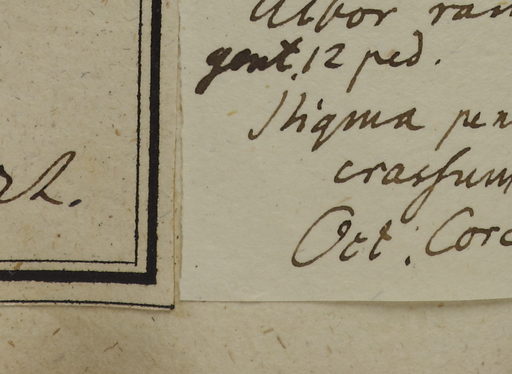 Arbor ram
gent. 12 ped.
Stigma pen
crassum
Oct. Cord
rh.